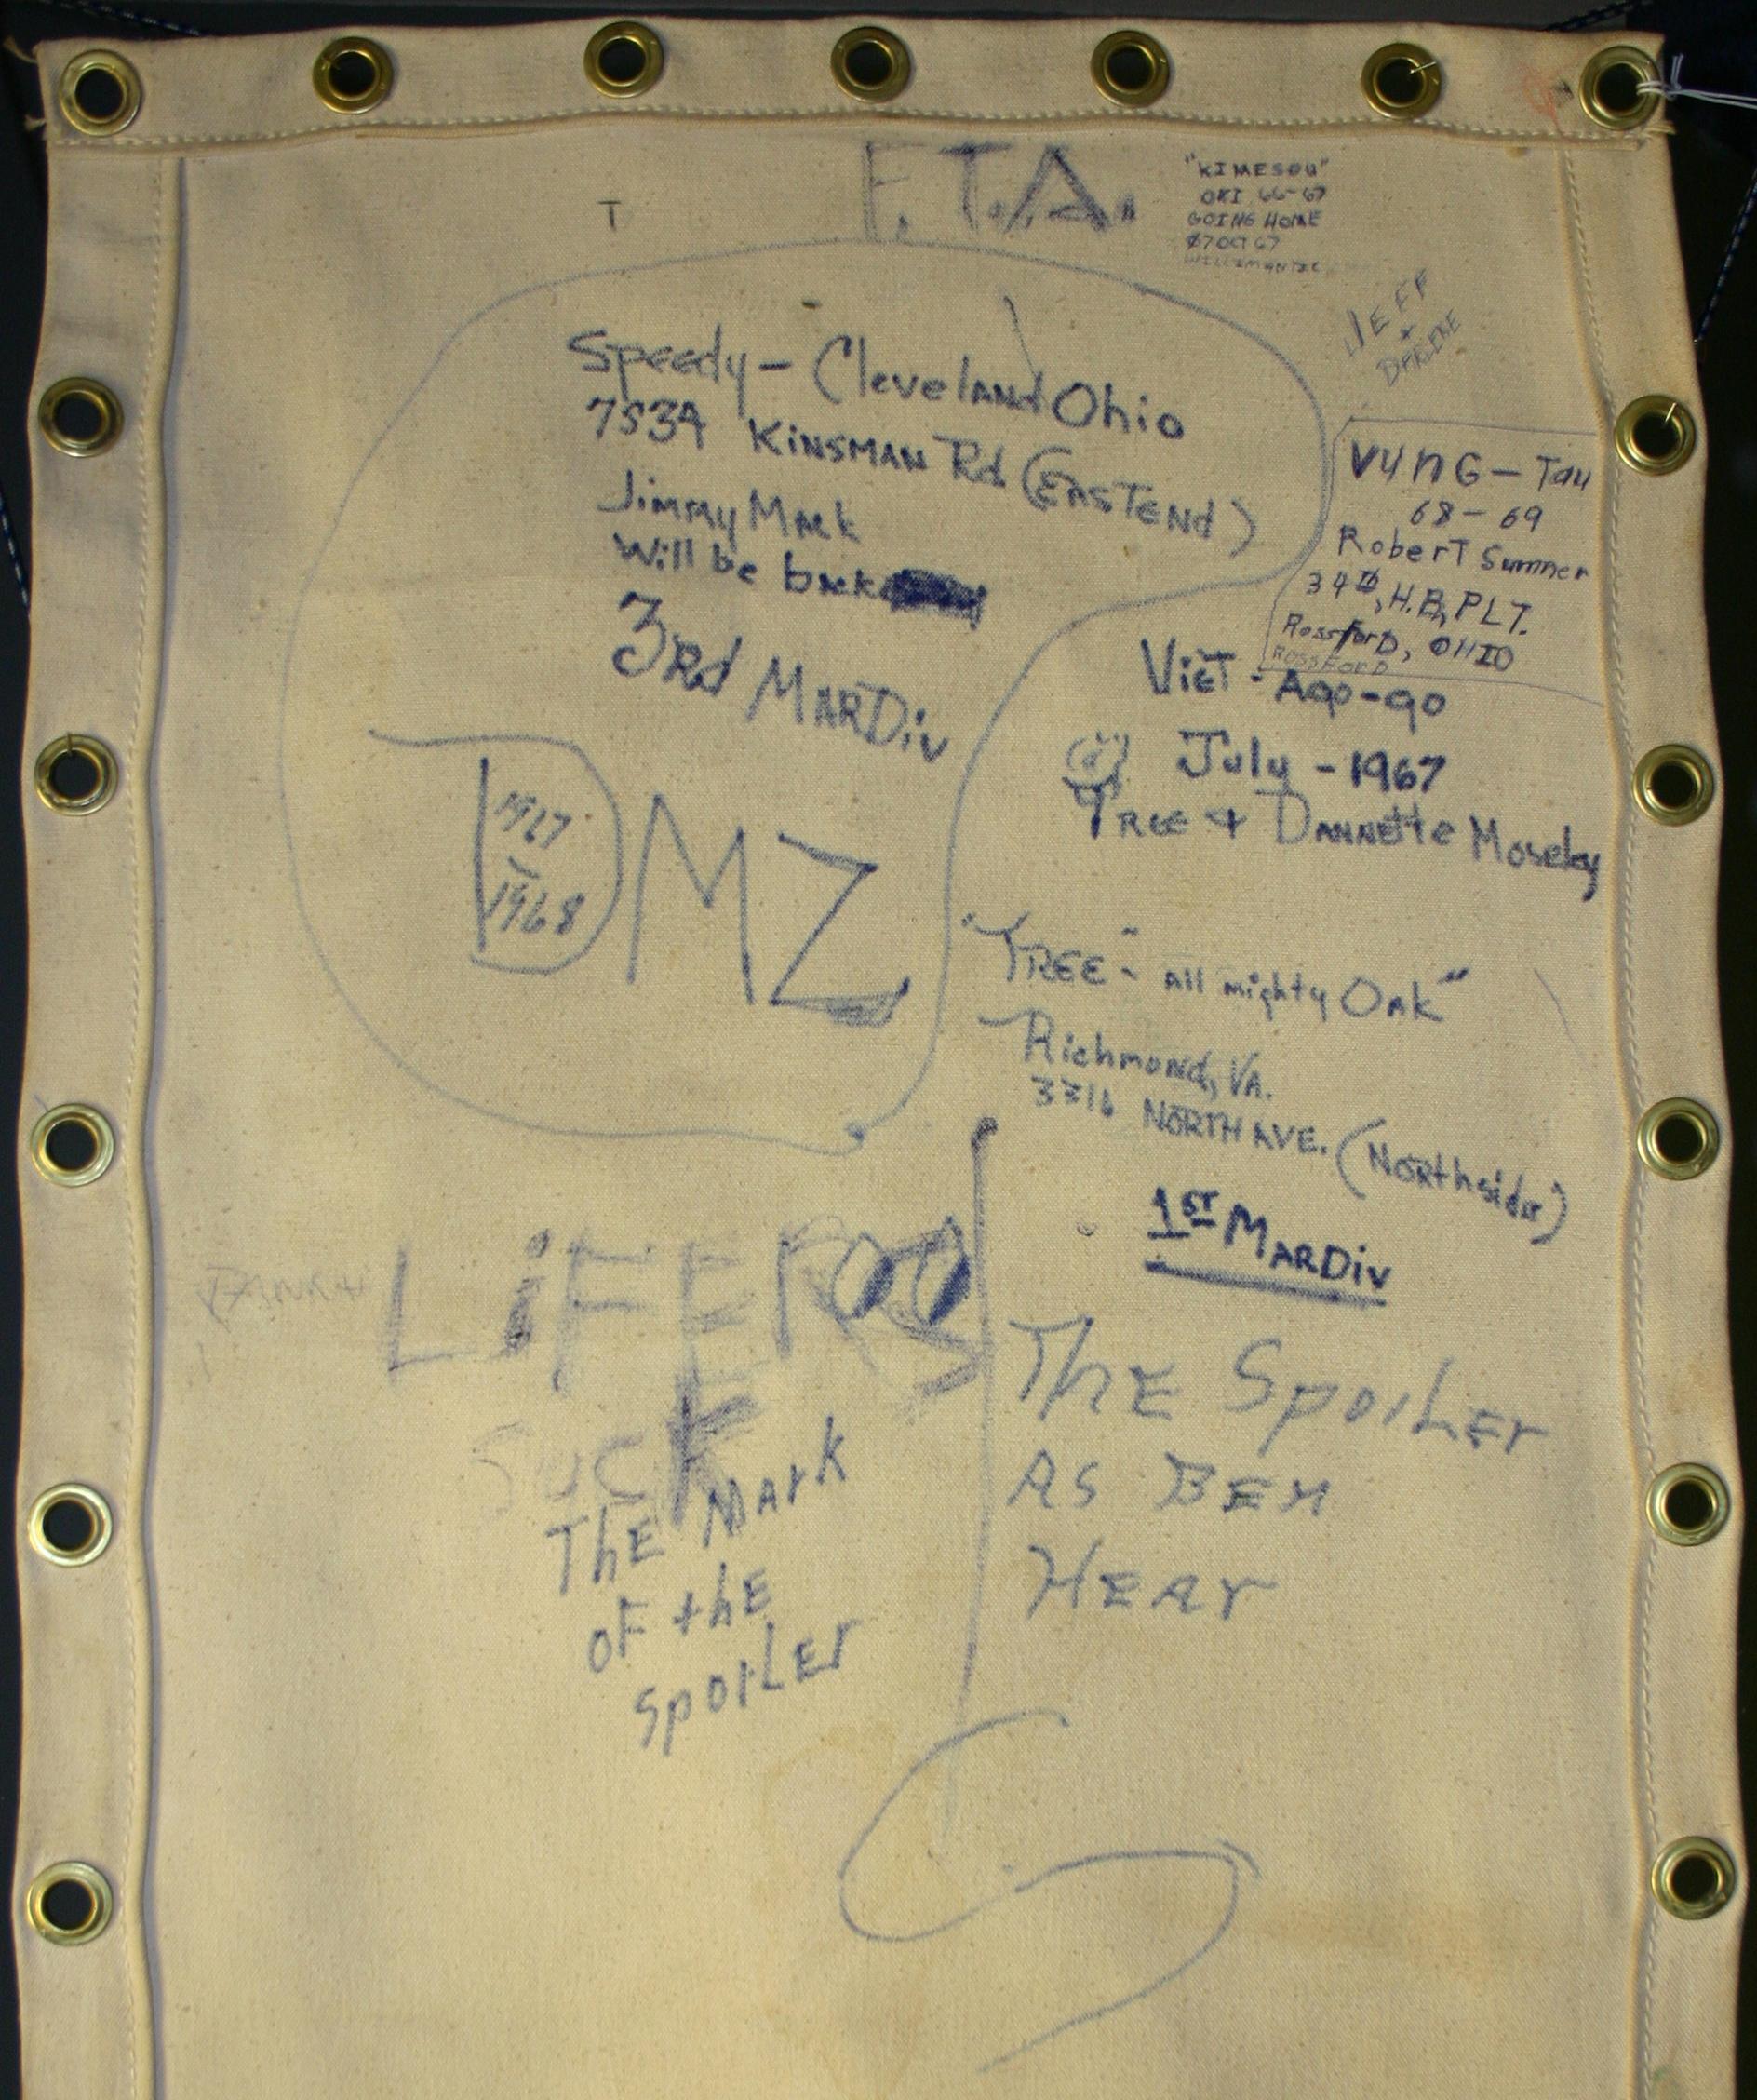 F.T.A.
T
"KIMESOU"
OKI 66-67
GOING HOME
07 OCT 67
WILLIMANTIC
JEFF
+
DARLENE
Speedy - Cleveland Ohio
7534 KiNSMAN Rd (EASTENd)
Jimmy Mack
Will be back
3Rd MARDiv
1967
1968
DMZ
VUNG - Tau
68 - 69
RoberT Sumner
34th, H.B, PLT.
RossforD, OHIO
RossForD
VieT - Ago-go
July - 1967
TREE + DANNEtte Moseley
"TREE - all mighty OAk"
Richmond, VA.
3316 NORTH AVE. (NORthsider)
1ST MARDiv
LiFERS
SUCK
ThE MArk
OF thE
SpoiLEr
ThE SpoiLEr
AS BEEN
HEAr